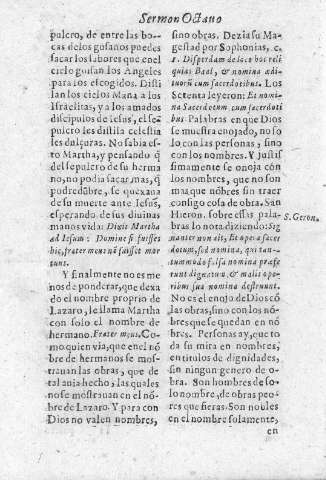 Sermon Octauo
pulcro, de entre las bo-
cas delos gusanos puedes
sacar los sabores que en el
cielo guisan los Angeles
para los escogidos. Disti
lan los cielos Mana a los
Israelitas, y a los amados
discipulos de Iesus, el se-
pulcro les distila celestia
les dulçuras. No sabia es-
to Martha, y pensando q̃
del sepulcro de su herma
no, no podia sacar, mas, q̃
podredũbre, se quexana
de su muerte ante Iesus,
esperando de sus diuinas
manos vida: Dixit Martha
ad Iesum: Domine si fuisses
hic, frater meus nõ fuisset mor
tuus.
Y finalmente no es me
nos de ponderar, que dexa
do el nombre proprio de
Lazaro, le llama Martha
con solo el nombre de
hermano. Frater meus, Co-
mo quien via, que en el nõ
bre de hermanos se mos-
trauan las obras, que de
tal auia hecho, las quales
no se mostrauan en el nõ-
bre de Lazaro. Y para con
Dios no valen nombres,
sino obras. Dezia su Ma-
gestad por Sophonias, c.
1. Disperdam de loco hos reli
quias Baal, & nomina ædi-
tuorũ cum sacerdotibus. Los
Setenta leyeron: Et nomi-
na Sacerdotum cum sacerdoti
bus. Palabras en que Dios
se muestra enojado, no so
lo con las personas, sino
con los nombres. Y justis
simamente se enoja con
los nombres, que no son
mas que nõbres sin traer
consigo cosa de obra. San
Hieron. sobre estas pala-
bras lo nota diziendo: Sig
nanter non ait, Et opera sacer
dotum, sed nomina, qui tan-
tummodo falsa nomina præfe
runt dignitatũ, & malis ope-
ribus sua nomina destruunt.
No es el enojo de Dios cõ
las obras, sino con los nõ-
bres que se quedan en nõ
bres. Personas ay, que to
da su mira en nombres,
en titulos de dignidades,
sin ningun genero de o-
bra. Son hombres de so-
lo nombre, de obras peo-
res que fieras. Son nobles
en el nombre solamente,
en
S. Geron.